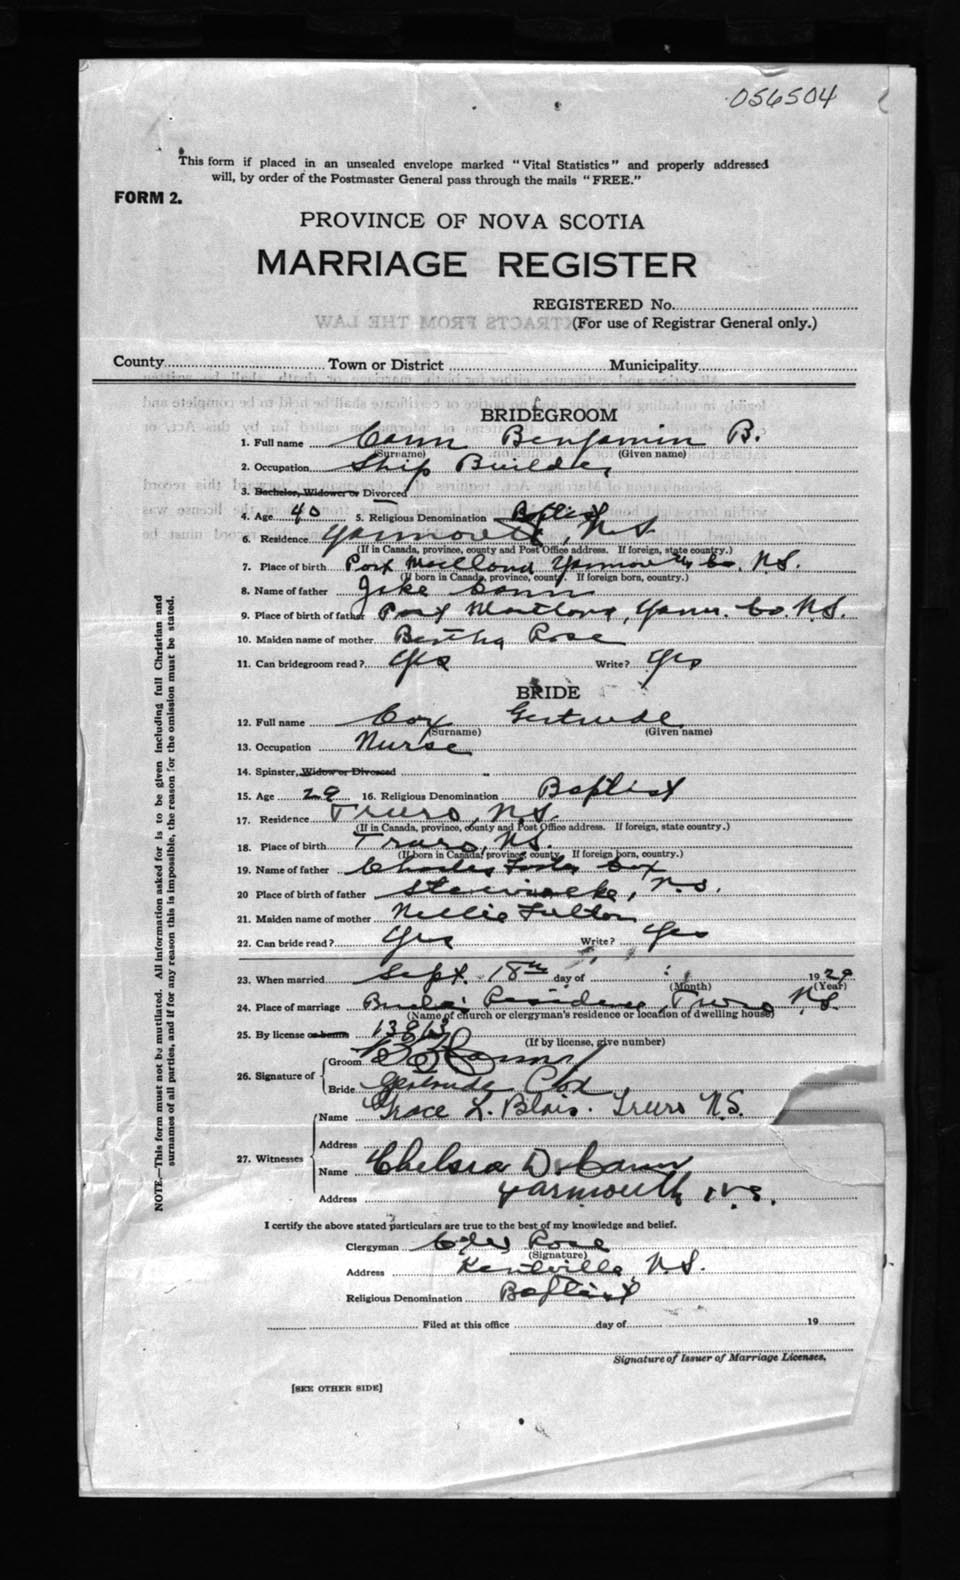 056504
This form if placed in an unsealed envelope marked "Vital Statistics" and properly addressed
will, by order of the Postmaster General pass through the mails "FREE."
FORM 2.
PROVINCE OF NOVA SCOTIA
MARRIAGE REGISTER
REGISTERED No.
(For use of Registrar General only.)
County Town or District Municipality
BRIDEGROOM
1. Full name Cann Benjamin B.
(Surname) (Given name)
2. Occupation Ship Builder
3. Bachelor, Widower or Divorced
4. Age 40 5. Religious Denomination Baptist
6. Residence Yarmouth, N.S.
(If in Canada, province, county and Post Office address. If foreign, state country.)
7. Place of birth Port Maitland Yarmouth Co, N.S.
(If born in Canada, province, county. If foreign born, country.)
8. Name of father Jake Cann
9. Place of birth of father Port Maitland, Yarm. Co. N.S.
10. Maiden name of mother Bertha Rose
11. Can bridegroom read? Yes Write? Yes
BRIDE
12. Full name Cox Gertrude
(Surname) (Given name)
13. Occupation Nurse
14. Spinster, Widow or Divorced
15. Age 29 16. Religious Denomination Baptist
17. Residence Truro, N.S.
(If in Canada, province, county and Post Office address. If foreign, state country.)
18. Place of birth Truro, N.S.
(If born in Canada, province, county. If foreign born, country.)
19. Name of father Charles Cox
20 Place of birth of father Stewiacke, N.S.
21. Maiden name of mother Nellie Fulton
22. Can bride read? Yes Write? Yes
23. When married Sept. 18th day of 1929
(Month) (Year)
24. Place of marriage Residence Truro N.S.
(Name of church or clergyman's residence or location of dwelling house)
25. By license or banns
(If by license, give number)
26. Signature of
Groom B B Cann
Bride Gertrude Cox
27. Witnesses
Name Grace L. Blois. Truro N.S.
Address
Name Chelsea D. Cann
Address Yarmouth N.S.
I certify the above stated particulars are true to the best of my knowledge and belief.
Clergyman Rose
(Signature)
Address Kentville, N.S.
Religious Denomination Baptist
Filed at this office day of 19
Signature of Issuer of Marriage Licenses.
[SEE OTHER SIDE]
NOTE.—This form must not be mutilated. All information asked for is to be given including full Christian and
surnames of all parties, and if for any reason this is impossible, the reason for the omission must be stated.